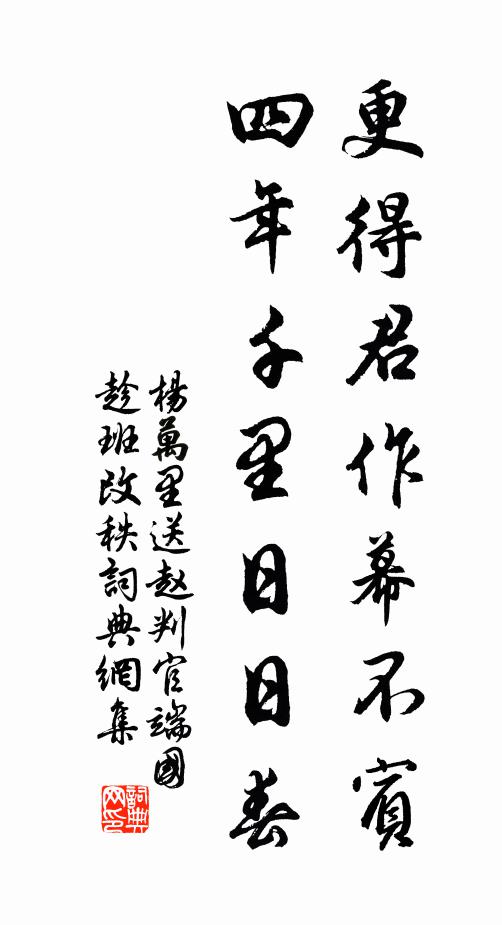 更得君作幕不賓
四年千里日日春
楊萬里送赵判官端國
趁班改秩詞典網集
詞典網印